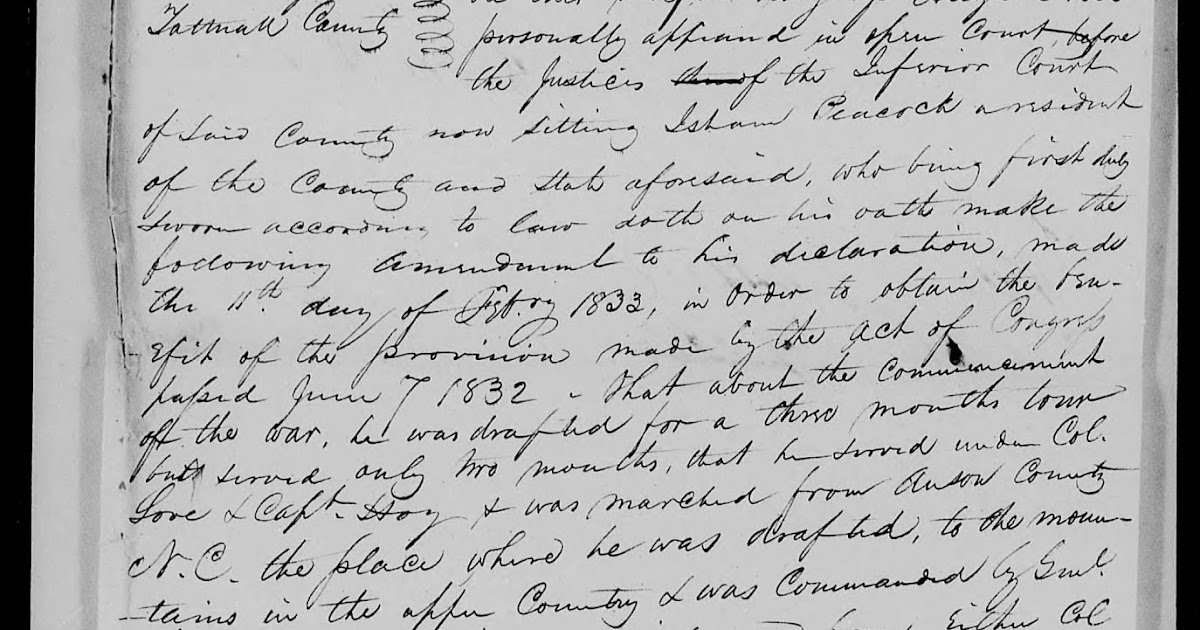 Tattnall County
personally appeard in open Court, before
the Justices thereof the Inferior Court
of Said County now sitting Isham Peacock a resident
of the County and State aforesaid, who being first duly
sworn according to law doth on his oath make the
following amendment to his declaration, made
the 11th. day of Feb.ry 1833, in order to obtain the ben-
efit of the provision made by the act of Congress
passed June 7 1832 - That about the commencement
off the war, he was drafted for a three months tour
but served only two months, that he served under Col.
Love & Capt. Hoy & was marched from Anson County
N.C. the place where he was drafted, to the moun-
-tains in the upper Country & was Commanded by Genl.
Either Col